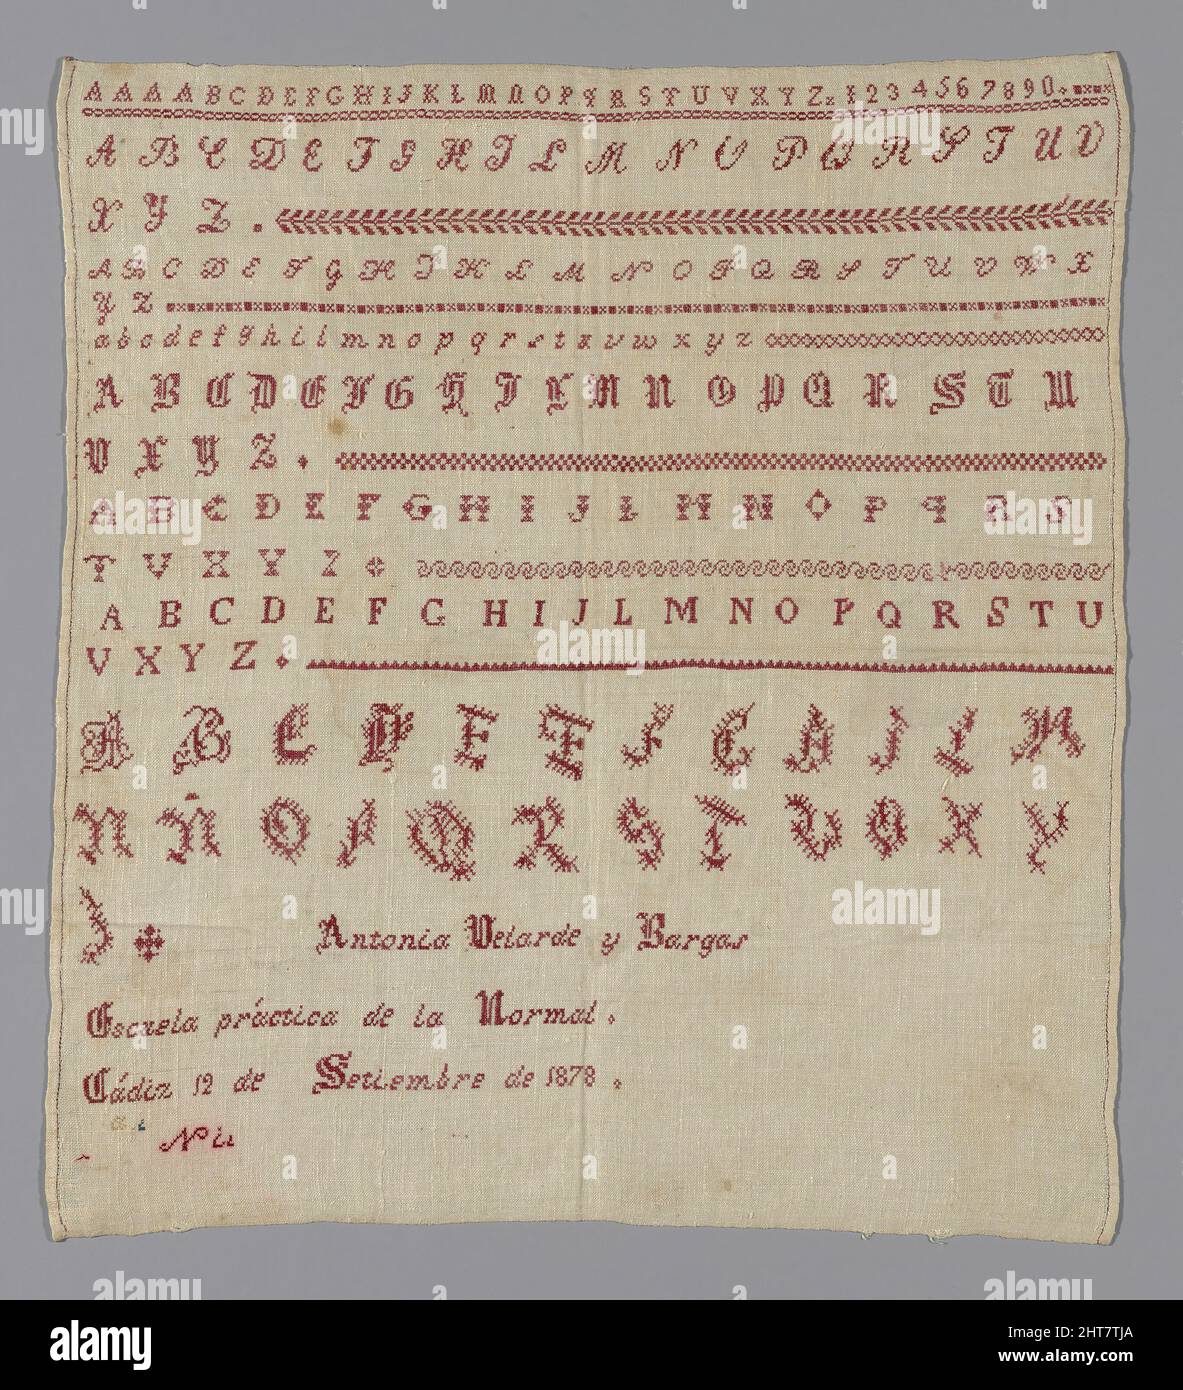 A A A A B C D E F G H I J K L M N O P q R S T U V X Y Z z 1 2 3 4 5 6 7 8 9 0
A B C D E F G H I L M N O P Q R S T U V
X Y Z .
A B C D E F G H I K L M N O P Q R S T U V W X
Y Z
a b c d e f g h i l l m n o p q r s t x v w x y z
A B C D E F G H I L M N O P Q R S T U
V X Y Z .
A B C D E F G H I J L M N O P q R S
T V X Y Z
A B C D E F G H I J L M N O P Q R S T U
V X Y Z
A B C D E F G H I L M
N Ñ O P Q R S T U V X Y
Z
Antonia Velarde y Bargas
Escuela práctica de la Normal.
Cádiz 12 de Setiembre de 1878.
a i
N
alamy
Image ID: 2HT7TJA
www.alamy.com